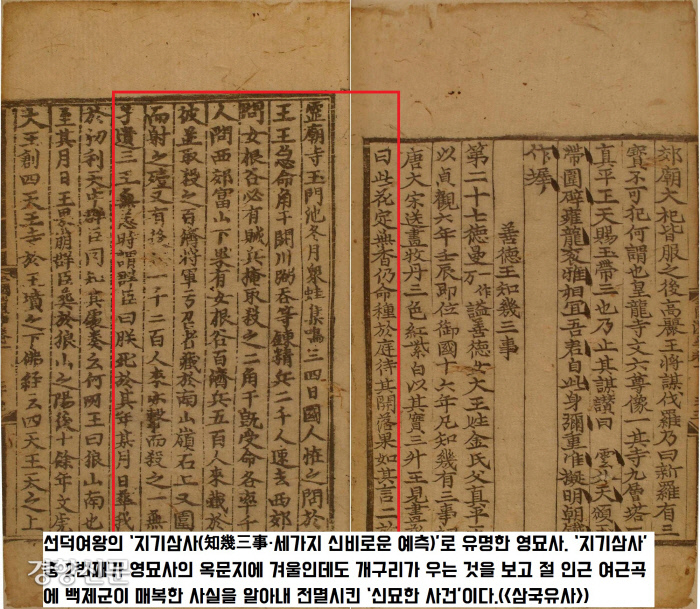 郊廟大祀皆服之後高麗王將謀伐羅乃曰新羅有三
寶不可犯何謂也皇龍寺丈六尊像一其寺九層塔二
真平王天賜玉帶三也乃止其謀讚曰 雲外天頒玉
帶圍辟雍龍袞雅相宜吾君自此身彌重准擬明朝鐵
作墀
善德王知幾三事
第二十七德曼一作万諡善德女大王姓金氏父真平王
以貞觀六年壬辰即位御國十六年凡知幾有三事
唐太宗送畫牧丹三色紅紫白以其實三升王見畫
曰此花定無香仍命種於庭待其開落果如其言二
靈廟寺玉門池冬月衆蛙集鳴三四日國人怪之問於
王王急命角干閼川弼呑等鍊精兵二千人速去西郊
問女根谷必有賊兵掩取殺之二角干旣受命各率千
人問西郊富山下果有女根谷百濟兵五百人來藏於
彼並取殺之百濟將軍亐召者藏於南山嶺石上又圍
而射之殪又有後兵一千二百人來亦擊而殺之一無
孑遺三王無恙時謂群臣曰朕死於某年某月日葬我
於忉利天中群臣罔知其處奏云何所王曰狼山南也
至其月日王果崩群臣葬於狼山之陽後十餘年文虎
大王創四天王寺於王墳之下佛經云四天王天之上
선덕여왕의 '지기삼사(知幾三事·세가지 신비로운 예측)'로 유명한 영묘사. '지기삼사'
중 한가지가 영묘사의 옥문지에 겨울인데도 개구리가 우는 것을 보고 절 인근 여근곡
에 백제군이 매복한 사실을 알아내 전멸시킨 '신묘한 사건'이다.(<삼국유사>)
경향신문